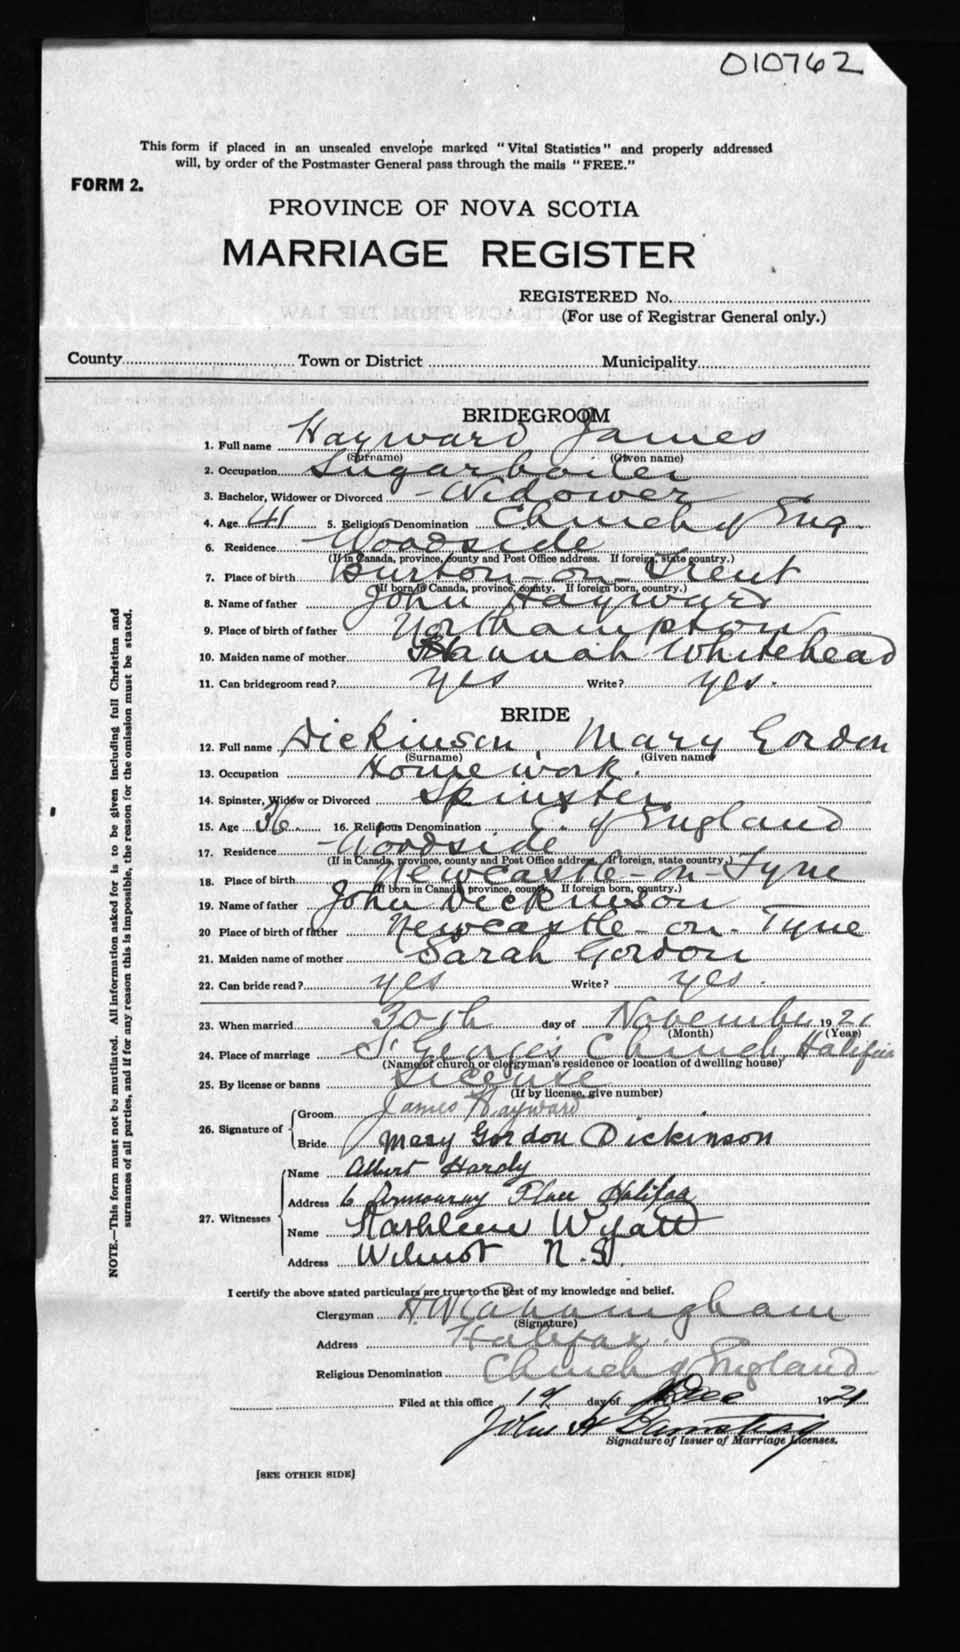 010762
This form if placed in an unsealed envelope marked "Vital Statistics" and properly addressed
will, by order of the Postmaster General pass through the mails "FREE."
FORM 2.
PROVINCE OF NOVA SCOTIA
MARRIAGE REGISTER
REGISTERED No.
(For use of Registrar General only.)
County Town or District Municipality
BRIDEGROOM
1. Full name Hayward James
(Surname) (Given name)
2. Occupation Sugarboiler
3. Bachelor, Widower or Divorced Widower
4. Age 41 5. Religious Denomination Church of Eng.
6. Residence Woodside
(If in Canada, province, county and Post Office address. If foreign, state country.)
7. Place of birth Burton-on-Trent
(If born in Canada, province, county. If foreign born, country.)
8. Name of father John Hayward
9. Place of birth of father Northampton
10. Maiden name of mother Hannah Whitehead
11. Can bridegroom read? yes Write? yes.
BRIDE
12. Full name Dickinson, Mary Gordon
(Surname) (Given name)
13. Occupation Homework.
14. Spinster, Widow or Divorced Spinster
15. Age 36. 16. Religious Denomination C. of England
17. Residence Woodside
(If in Canada, province, county and Post Office address, If foreign, state country.)
18. Place of birth Newcastle-on-Tyne
(If born in Canada, province, county, If foreign born, country.)
19. Name of father John Dickinson
20 Place of birth of father Newcastle-on-Tyne
21. Maiden name of mother Sarah Gordon
22. Can bride read? yes Write? yes.
23. When married 30th day of November 1921
(Month) (Year)
24. Place of marriage St George's Church Halifax
(Name of church or clergyman's residence or location of dwelling house)
25. By license or banns License
(If by license, give number)
26. Signature of Groom James Hayward
Bride Mary Gordon Dickinson
27. Witnesses Name Albert Hardy
Address 6 Armouray Place Halifax
Name Kathleen Wyatt
Address Wilmot N.S.
I certify the above stated particulars are true to the best of my knowledge and belief.
Clergyman Cunningham
(Signature)
Address Halifax.
Religious Denomination Church of England
Filed at this office 1st day of Dec 1921
John H
Signature of Issuer of Marriage Licenses.
[SEE OTHER SIDE]
NOTE.—This form must not be mutilated. All information asked for is to be given including full Christian and
surnames of all parties, and if for any reason this is impossible, the reason for the omission must be stated.